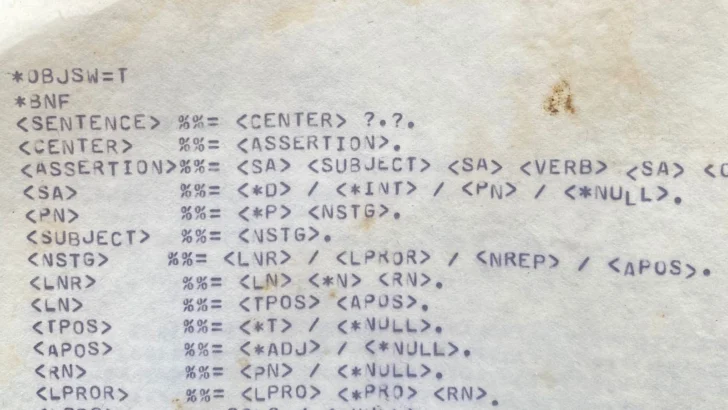 *OBJSW=T
*BNF
<SENTENCE> %%= <CENTER> ?.?.
<CENTER> %%= <ASSERTION>.
<ASSERTION>%%= <SA> <SUBJECT> <SA> <VERB> <SA>
<SA> %%= <*D> / <*INT> / <PN> / <*NULL>.
<PN> %%= <*P> <NSTG>.
<SUBJECT> %%= <NSTG>.
<NSTG> %%= <LNR> / <LPROR> / <NREP> / <APOS>.
<LNR> %%= <LN> <*N> <RN>.
<LN> %%= <TPOS> <APOS>.
<TPOS> %%= <*T> / <*NULL>.
<APOS> %%= <*ADJ> / <*NULL>.
<RN> %%= <PN> / <*NULL>.
<LPROR> %%= <LPRO> <*PRO> <RN>.